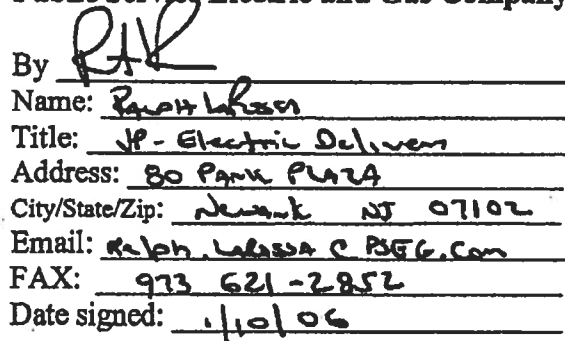 Public Service Electric and Gas Company
By
Name: Ralph LaRossa
Title: VP - Electric Delivery
Address: 80 PARK PLAZA
City/State/Zip: Newark NJ 07102
Email: Ralph.LaRossa @ PSEG.Com
FAX: 973 621-2852
Date signed: 1/10/06